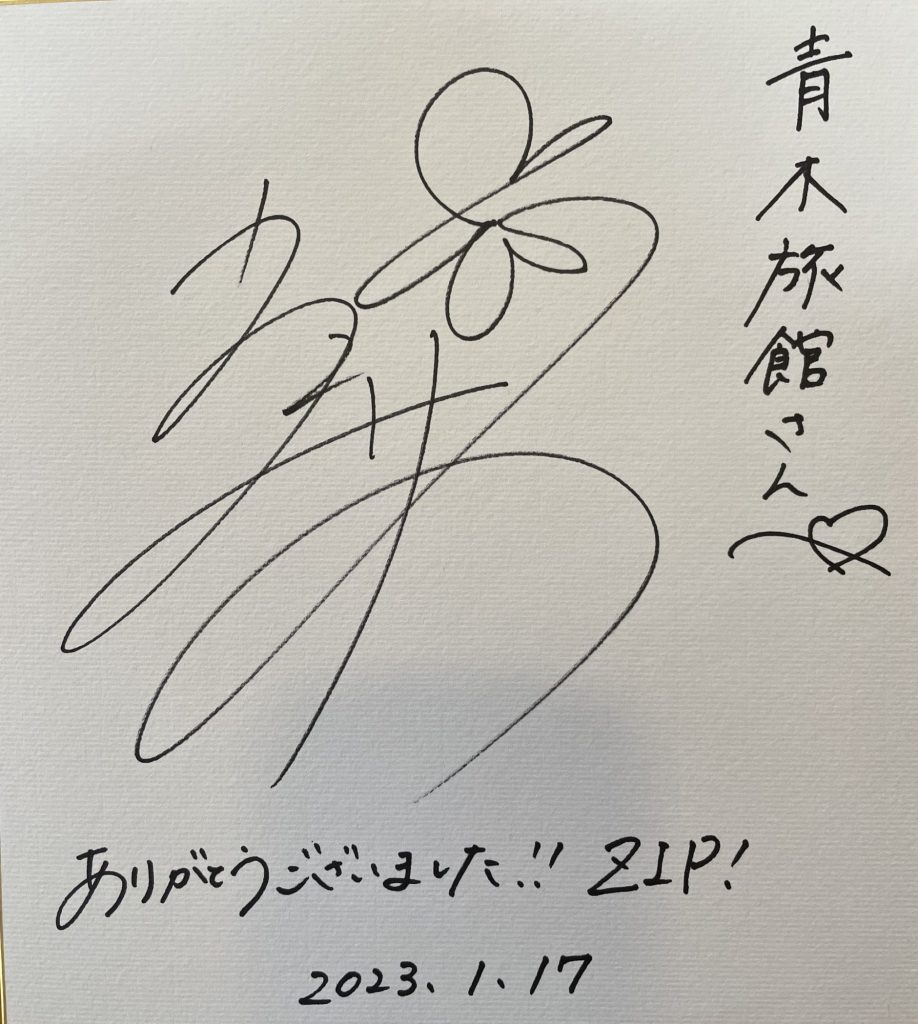 青木旅館さん
ありがとうございました!! ZIP!
2023.1.17